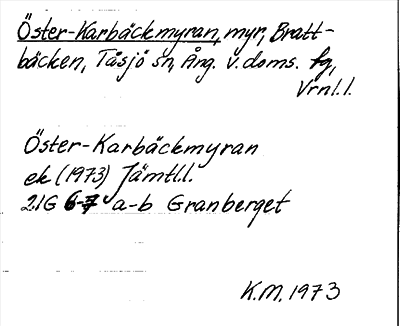 Öster-Karbäckmyran, myr, Bratt-
bäcken, Tåsjö sn, Ång. v. doms. fg,
Vrnl.l.
Öster-Karbäckmyran
ek (1973) Jämtl.l.
21G 6-7 a-b Granberget
K.M. 1973